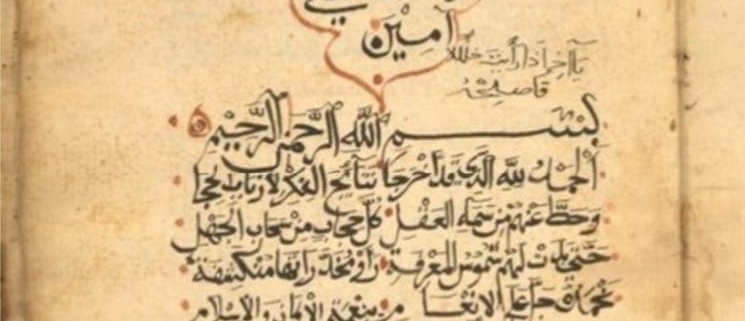 آمِيْن
يآ اخي اذا رأيت خللا
فاصلحه
بِسْمِ اللّٰهِ الرَّحْمٰنِ الرَّحِيْمِ
اَلْحَمْدُ لِلّٰهِ الَّذِي قَدْ اَخْرَجَا نَتَائِجَ الْفِكْرِ لِاَرْبَابِ الْحِجَا
وَحَطَّ عَنْهُمْ مِنْ سَمَاءِ الْعَقْلِ كُلَّ حِجَابٍ مِنْ سَحَابِ الْجَهْلِ
حَتّٰى بَدَتْ لَهُمْ شُمُوْسُ الْمَعْرِفَةْ رَأَوْ مُخَدَّرَاتِهَا مُنْكَشِفَةْ
نَحْمَدُهُ جَلَّ عَلَى الْاِنْعَامِ بِنِعْمَةِ الْاِيْمَانِ وَالْاِسْلَامِ